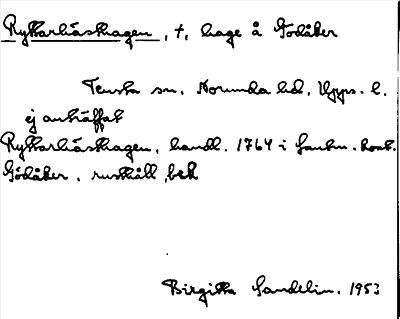 Ryttarhästhagen, †, hage å Gödåker
Tensta sn. Norunda hd. Upps. l.
ej anträffat
Ryttarhästhagen, handl. 1764 i Lantm. kont.
Gödåker, rusthåll, bek
Birgitta Sandelin. 1953